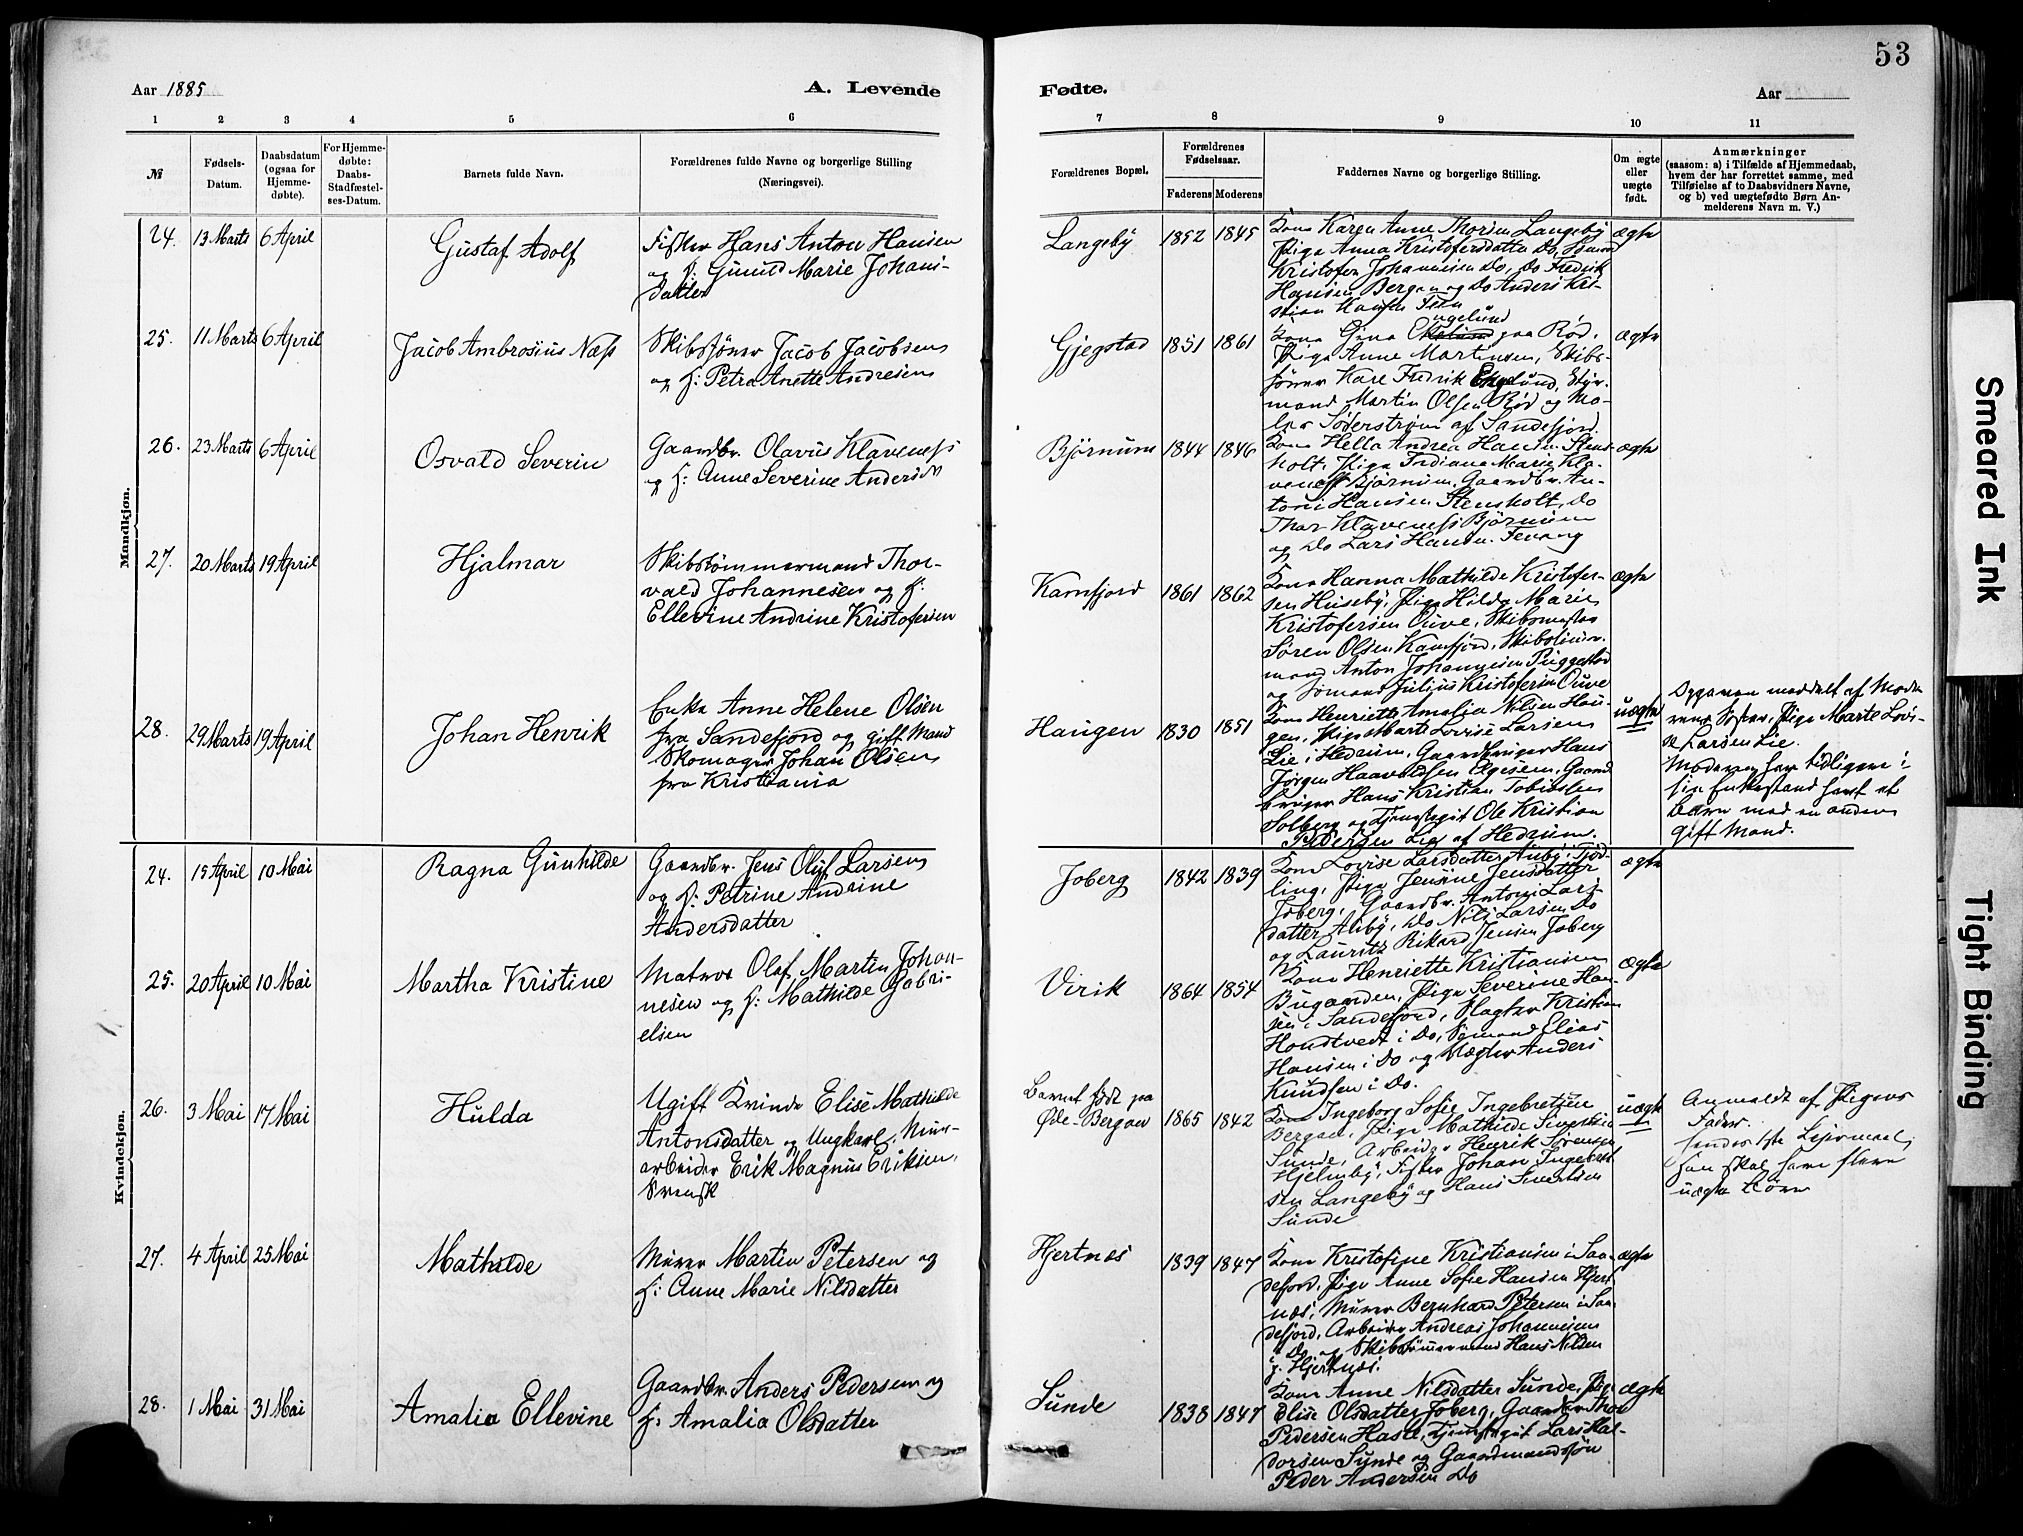 53
Aar 1885
A. Levende
Fødte.
Aar
1 2 3 4 5 6 7 8 9 10 11
№
Fødsels-
Datum.
Daabsdatum
(ogsaa for
Hjemme-
døbte).
For Hjemme-
døbte:
Daabs-
Stadfæstel-
ses-Datum.
Barnets fulde Navn.
Forældrenes fulde Navne og borgerlige Stilling
(Næringsvei).
Forældrenes Bopæl.
Forældrenes
Fødselsaar.
Faderens Moderens
Faddernes Navne og borgerlige Stilling.
Om ægte
eller
uægte
født.
Anmærkninger
(saasom: a) i Tilfælde af Hjemmedaab,
hvem der har forrettet samme, med
Tilføielse af to Daabsvidners Navne,
og b) ved uægtefødte Børn An-
melderens Navn m. V.)
Mandkjøn.
24. 13 Marts 6 April
Gustaf Adolf
Fisker Hans Anton Hansen
og H: Gunild Marie Johans-
datter
Langeby 1852 1845
Kone Karen Anne Thorsen Langeby
Pige Anna Kristofersdatter Do, Sømand
Kristofer Johannesen Do, Do Fredrik
Hansen Bergan og Do Anders Kri-
stian Hansen
ægte
25. 11 Marts 6 April
Jacob Ambrosius Næss
Skibsfører Jacob Jacobsen
og H: Petra Anette Andresen
Gjegstad 1851 1861
Kone Gina Engelund paa Rød,
Pige Anne Martinsen, Skibs-
fører Karl Fredrik Engelund, Styr-
mand Martin Olsen Rød og Ma-
ler Søderstrøm af Sandefjord.
ægte
26. 23 Marts 6 April
Osvald Severin
Gaardbr. Olavus Klaveness
og H: Anne Severine Andersdtr
Bjørnum 1844 1846
Kone Hella Andrea Hansen Stens-
holt, Pige Indiana Marie Kla-
veness Bjørnum, Gaardbr. An-
toni Hansen Stensholt, Do
Thor Klaveness Bjørnum
og Do Lars Hansen Fevang
ægte
27. 20 Marts 19 April
Hjalmar
Skibstømmermand Thor-
vald Johannesen og H:
Ellevine Andrine Kristofersen
Kamfjord 1861 1862
Kone Hanna Mathilde Kristofer-
sen Huseby, Pige Hilda Marie
Kristofersen Ouve, Skibsmester
Søren Olsen Kamfjord, Skibstømr.
mand Anton Johannesen Puggestad
og Sømand Julius Kristofersen Ouve
ægte
28. 29 Marts 19 April
Johan Henrik
Enke Anne Helene Olsen
fra Sandefjord og gift Mand
Skomager Johan Olsen
fra Kristiania
Haugen 1830 1851
Kone Henriette Amalia Nilsen Hau-
gen, Pige Marte Lovise Larsen
Lie i Hedrum, Gaardbruger Hans
Jørgen Haavaldsen, Gaard
bruger Hans Kristian Tobiassen
Solberg og Tjenestegut Ole Kristian
Pedersen Lie af Hedrum.
uægte
Opgaven meddelt af Mode-
rens Søster, Pige Marte Lovi-
se Larsen Lie.
Moderen har tidligere i
sin Enkestand havt et
Barn med en anden
gift Mand.
Kvindekjøn.
24. 15 April 10 Mai
Ragna Gunhilde
Gaardbr. Jens Oluf Larsen
og H: Petrine Andrine
Andersdatter
Joberg 1842 1839
Kone Lovise Larsdatter Auby, Tjød-
ling, Pige Jensine Jensdatter
Joberg, Gaardbr. Antoni Lars-
datter Auby, Do Nils Larsen Do
og Lauritz Rikard Jensen Joberg
ægte
25. 20 April 10 Mai
Martha Kristine
Matros Olaf Martin Johan-
nesen og H: Mathilde Gabri-
elsen
Virik 1864 1854
Kone Henriette Kristiansen
Bugaarden, Pige Severine Han-
sen i Sandefjord, Slagter Kristian
Hondtvedt i Do, Sømand Elias
Hansen i Do og Vægter Anders
Knudsen i Do.
ægte
26. 3 Mai 17 Mai
Hulda
Ugift Kvinde Elise Mathilde
Antonsdatter og Ungkarl, Mur-
arbeider Erik Magnus Eriksen,
Svensk
Barnet født paa
Øde-Bergan 1865 1842
Kone Ingeborg Sofie Ingebretsen
Bergan, Pige Mathilde Sivertsen
Sunde, Arbeider Henrik Sørensen
Hjelmby, Fisker Johan Ingebret-
sen Langeby og Hans Sivertsen
Sunde
uægte
Anmeldt af Pigens
Fader.
hendes 1ste Leiermaal,
han skal have flere
uægte Børn
27. 4 April 25 Mai
Mathilde
Murer Martin Petersen og
H: Anne Marie Nilsdatter
Hjertnes 1839 1847
Kone Kristofine Kristiansen i San-
defjord, Pige Anne Sofie Hansen Hjert
næs, Murer Bernhard Petersen i San-
defjord, Arbeider Andreas Johannesen
i Do og Skibstømmermand Hans Nilsen
p. Hjertnæs.
ægte
28. 1 Mai 31 Mai
Amalia Ellevine
Gaardbr. Anders Pedersen og
H: Amalia Olsdatter
Sunde 1838 1847
Kone Anne Nilsdatter Sunde, Pige
Elise Olsdatter Joberg, Gaardbr Thor
Pedersen Hasle, Tjenestegut Lars Hal-
dorsen Sunde og Gaardmandssøn
Peder Andersen Do
ægte
Smeared Ink
Tight Binding